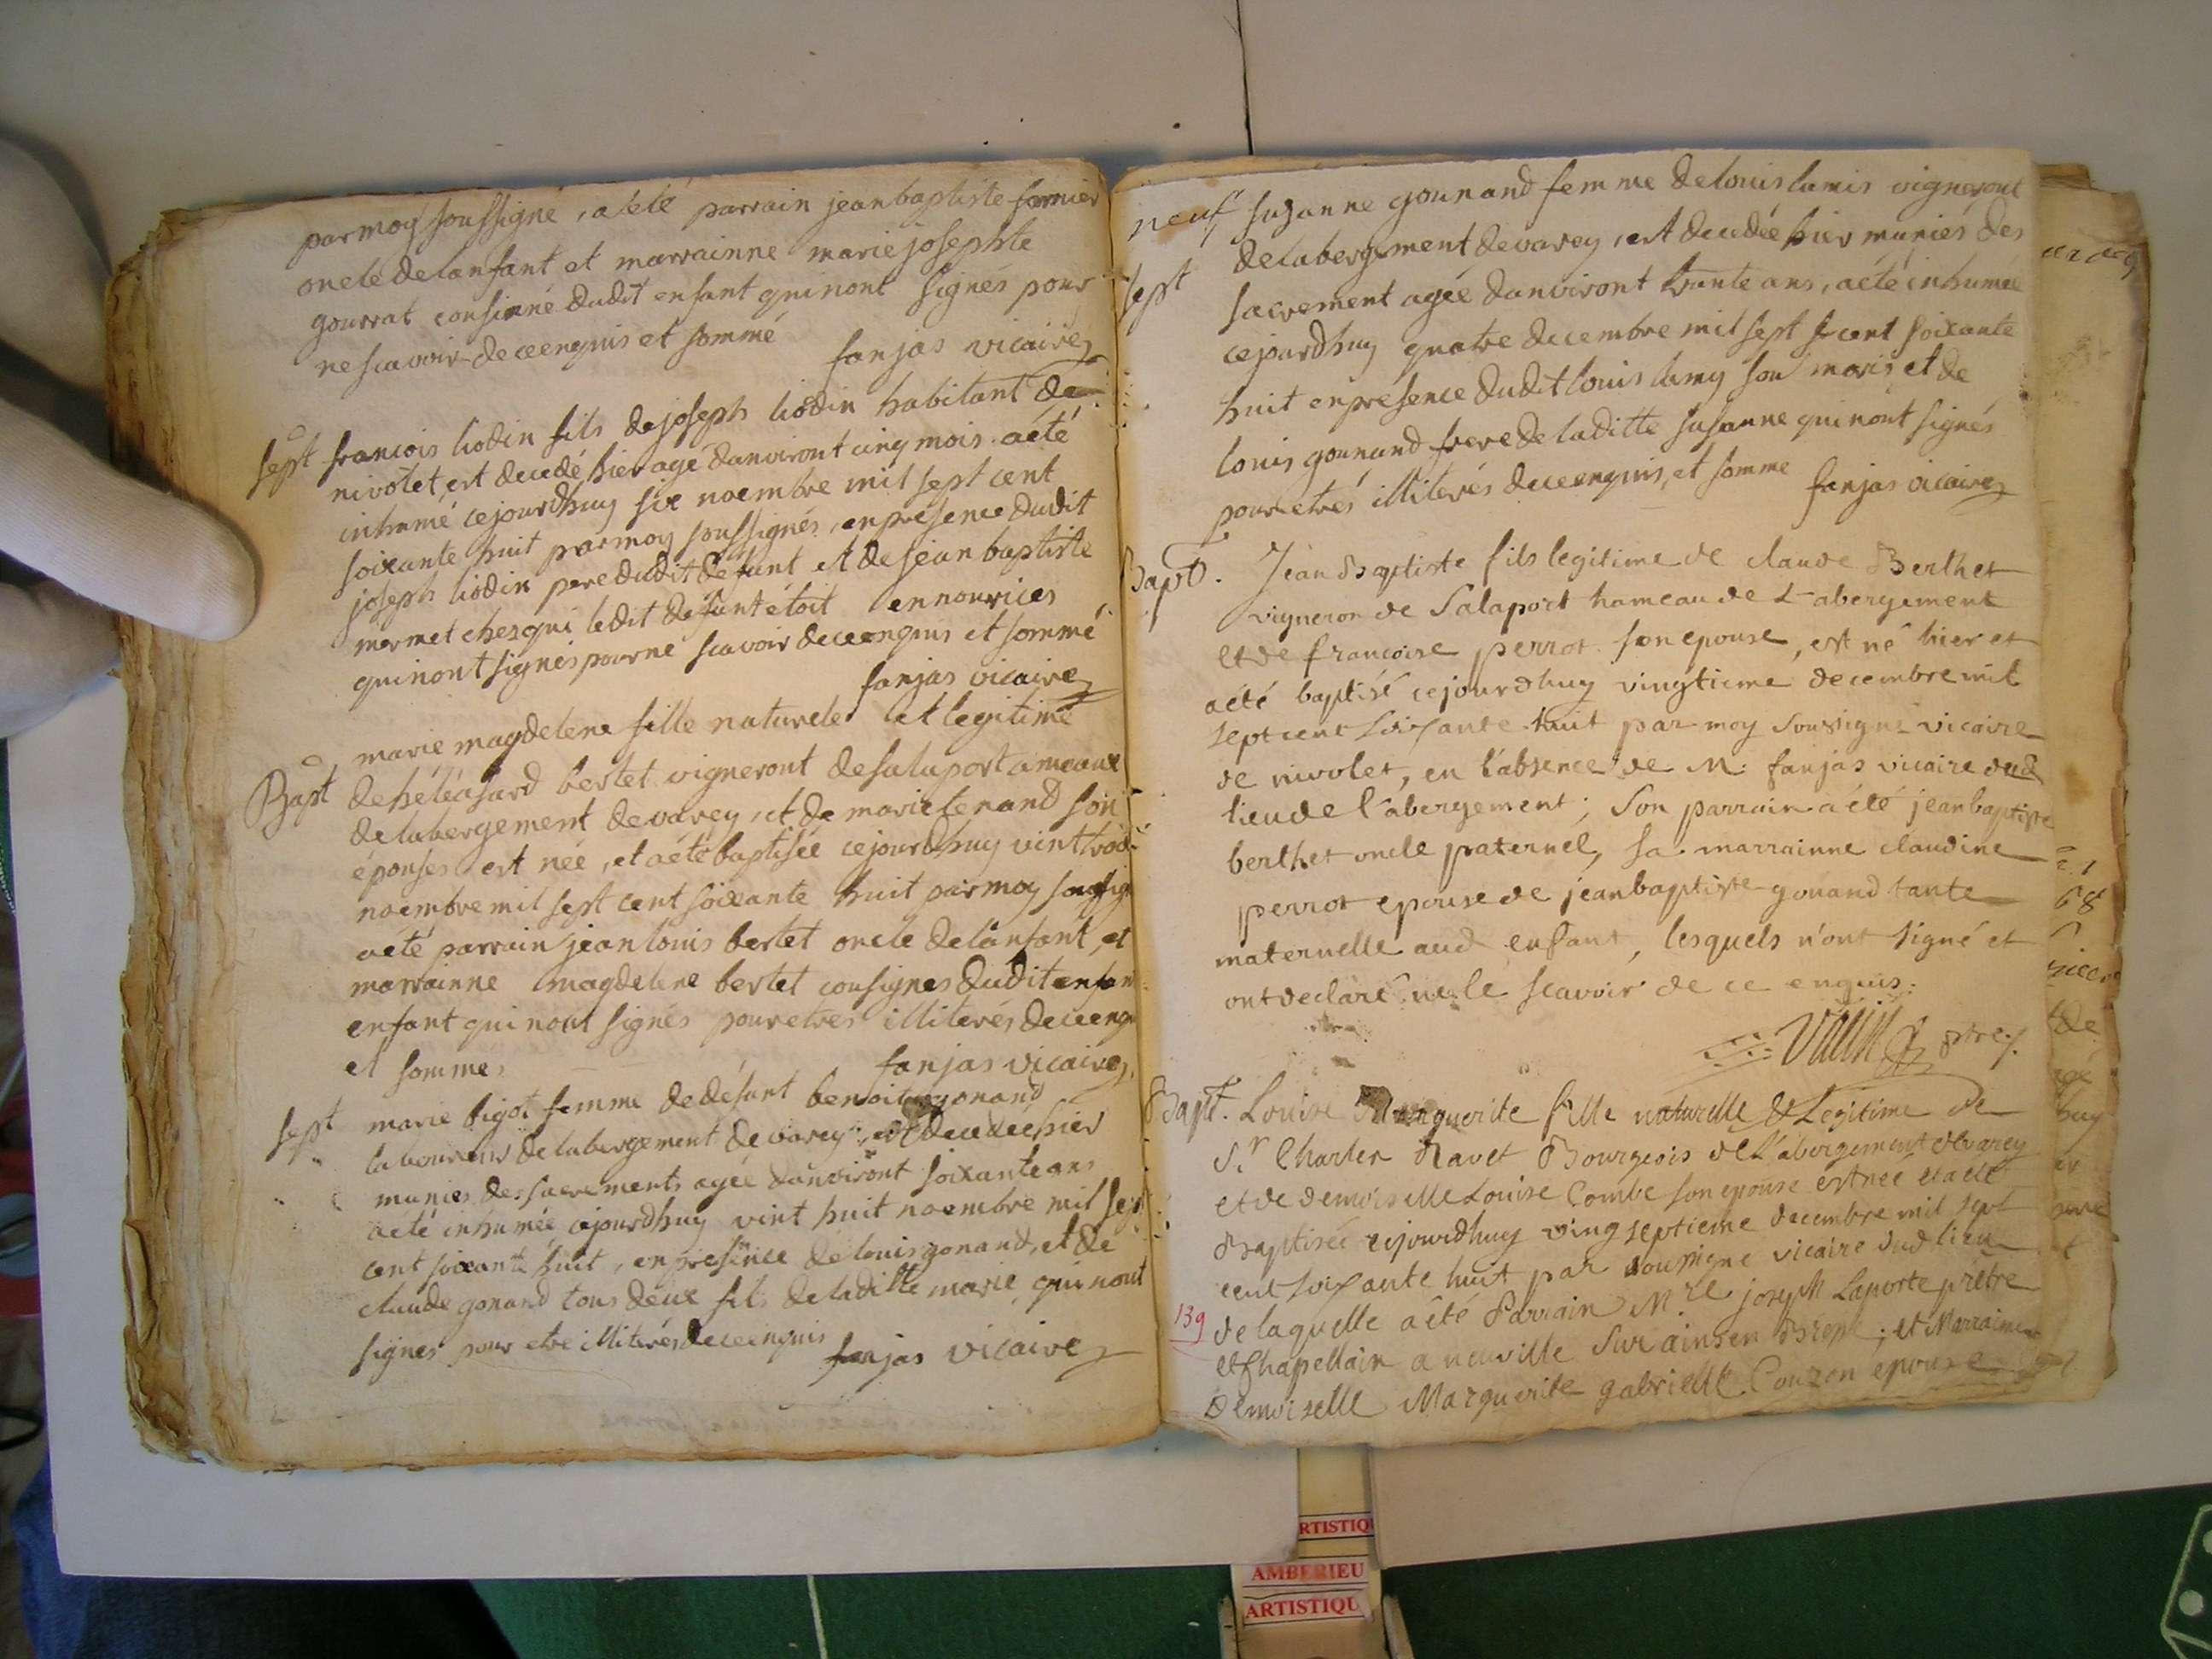 par moy soussigné, a été parrain jean baptiste fornier
oncle de lanfant et marrainne marie josephte
gourrat consinné dudit enfant qui nont signés pour
ne scavoir de ce enquis et sommé fanjas vicaire
sept francois liodin fils de joseph liodin habitant de
nivolet est decedé hier agé danviront cinq mois a été
inhumé cejourdhuy six noembre mil sept cent
soixante huit par moy soussignés, en presence dudit
joseph liodin pere dudit defunt et de jean baptiste
mermet ches qui ledit defunt étoit en nourices
qui nont signés pour ne scavoir de ce enquis et sommé
fanjas vicaire
marie magdelene fille naturele et legitime
Bapt de héléasard bertet vigneront de salaport ameaux
de labergement de varey, et de marie tenand son
épouses est née, et a été baptisée cejourdhuy vint trois
noembre mil sept cent soixante huit par moy soussig
a été parrain jean louis bertet oncle de lanfant, et
marrainne magdelene bertet consignes dudit enfan
enfant qui nont signés pour etres illiterés de ce enqu
et somme fanjas vicaire
sept marie bigot femme de défunt benoit gonand
laboureur de labergement de varey, est decedée hier
munies des sacrements agée danviront soixante ans
a été inhumée cejourdhuy vint huit noembre mil sept
cent soixante huit, en presence de louis gonand, et de
claude gonand tous deux fils de laditte marie qui nont
signes pour etre illiterés de ce enquis fanjas vicaire
neuf suzanne gounand femme de louis lamis vigneront
de labergement de varey, est decedée hier muniés des
sept sacrement agée danviront trante ans, a été inhumée
cejourdhuy quatre decembre mil sept s cent soixante
huit en presence dudit louis lamy son maris et de
louis gounand frere de laditte susanne qui nont signés
pour etrés illiterés de ce enquis, et somme fanjas vicaire
Bapt. Jean Baptiste fils legitime de claude Berthet
vigneron de Salaport hameau de L'abergement
et de francoise perrot son epouse, est né hier et
a été baptisé cejourdhuy vingtieme decembre mil
sept cent soixante huit par moy soussigné vicaire
de nivolet, en l'absence de M. fanjas vicaire dud
lieu de l'abergement; Son parrain a été jean baptiste
berthet oncle paternel, sa marrainne claudine
perrot epouse de jean baptiste gouand tante
maternelle aud enfant, lesquels n'ont signé et
ont declaré ne le scavoir de ce enquis.
ptre
Bapt. Louise Marguerite fille naturelle & Legitime de
S.r Charles Ravet Bourgeois de L'abergement de varey
et de demoiselle Louise Combe son epouse est née et a été
Baptisée cejourdhuy vingt septieme decembre mil sept
cent soixante huit par soussigné vicaire dud lieu
139 de laquelle a été Parrain M.re joseph Laporte prêtre
et Chapellain a neuville sur ains en Bresse; et Marrainne
Demoiselle Marguerite gabrielle Couzon epouse
68
de
huy
RTISTIQ
AMBERIEU
ARTISTIQU